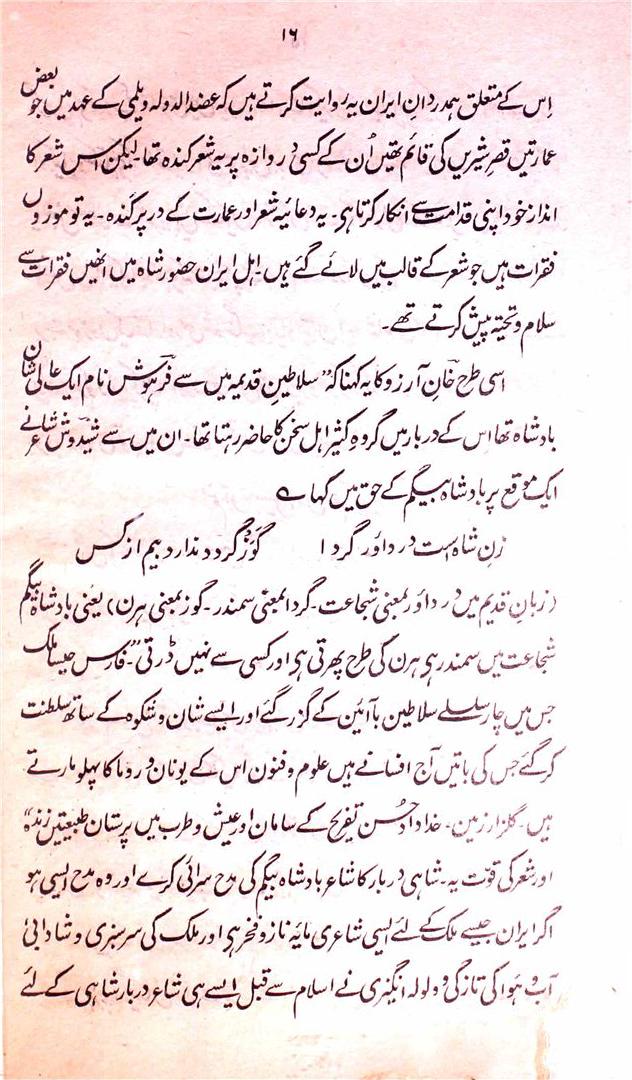 ۱۶
اِس کے متعلق ہمدردانِ ایران یہ روایت کرتے ہیں کہ عضد الدولہ ویلمی کے عہد میں جو بعض
عمارتیں قصرِ شیریں کی قائم تھیں اُن کے کسی دروازہ پر یہ شعر کندہ تھا۔ لیکن اس شعر کا
انداز خود اپنی قدامت سے انکار کرتا ہی۔ یہ دعائیہ شعر اور عمارت کے در پر کندہ۔ یہ تو موزوں
فقرات ہیں جو شعر کے قالب میں لائے گئے ہیں۔ اہل ایران حضور شاہ میں انھیں فقرات سے
سلام و تحیّتہ پیش کرتے تھے۔
اسی طرح خانِ آرزو کا یہ کہنا کہ "سلاطینِ قدیمہ میں سے فرہوش نام ایک عالی شان
بادشاہ تھا اس کے دربار میں گروہِ کثیر اہل سخن کا حاضر رہتا تھا۔ ان میں سے شیدوش شاعر نے
ایک موقع پر بادشاہ بیگم کے حق میں کہا ہے
زنِ شاہ است در داور گردا گوزگردد ندارد بیم از کس
(زبانِ قدیم میں در داور بمعنی شجاعت۔ گردا بمعنی سمندر۔ گوز بمعنی ہرن) یعنی بادشاہ بیگم
شجاعت میں سمندر ہی ہرن کی طرح پھرتی ہی اور کسی سے نہیں ڈرتی"۔ فارس جیسا ملک
جس میں چار سلسلے سلاطین باآئین کے گزر گئے اور ایسے شان و شکوہ کے ساتھ سلطنت
کر گئے جس کی باتیں آج افسانے ہیں علوم و فنون اس کے یونان و روما کا پہلو مارتے
ہیں۔ گلزار زمین۔ خداداد حُسن تفریح کے سامان اور عیش و طرب میں پرستان طبیعتیں زندہ
اور شعر کی قوّت یہ۔ شاہی دربار کا شاعر بادشاہ بیگم کی مدح سرائی کرے اور وہ مدح ایسی ہو
اگر ایران جیسے ملک کے لئے ایسی شاعری مایۂ ناز و فخر ہی اور ملک کی سرسبزی و شادابی
آب و ہوا کی تازگی و ولولہ انگیزی نے اسلام سے قبل ایسے ہی شاعر دربار شاہی کے لئے